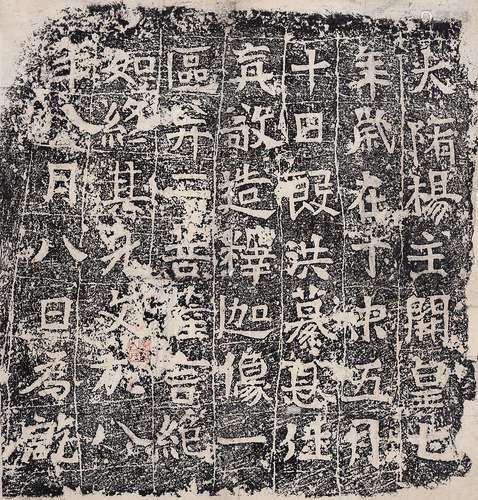 大隋楊主開皇七
年歲在丁未五月
十日殷洪纂甚住
真敬造釋迦像一
區并二菩薩言絕
如終其身父於八
年八月八日為龍